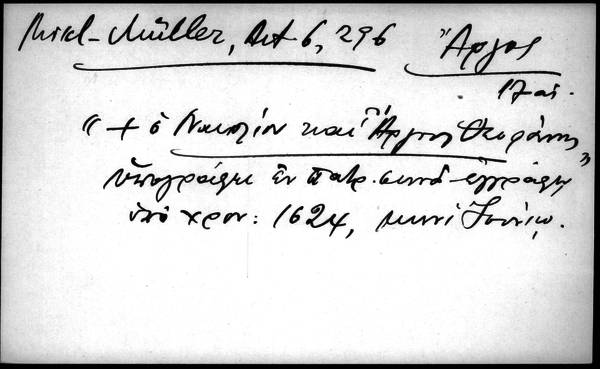 Mikl-Müller, Act 6, 296
Ἄργος
17 αἰ.
“+ ὁ Ναυπλίου καὶ Ἄργους Θεοφάνης”
ὑπογράφει ἐν πατρ. συνοδ. ἐγγράφῳ
ὑπὸ χρον: 1624, μηνὶ Ἰουνίῳ.